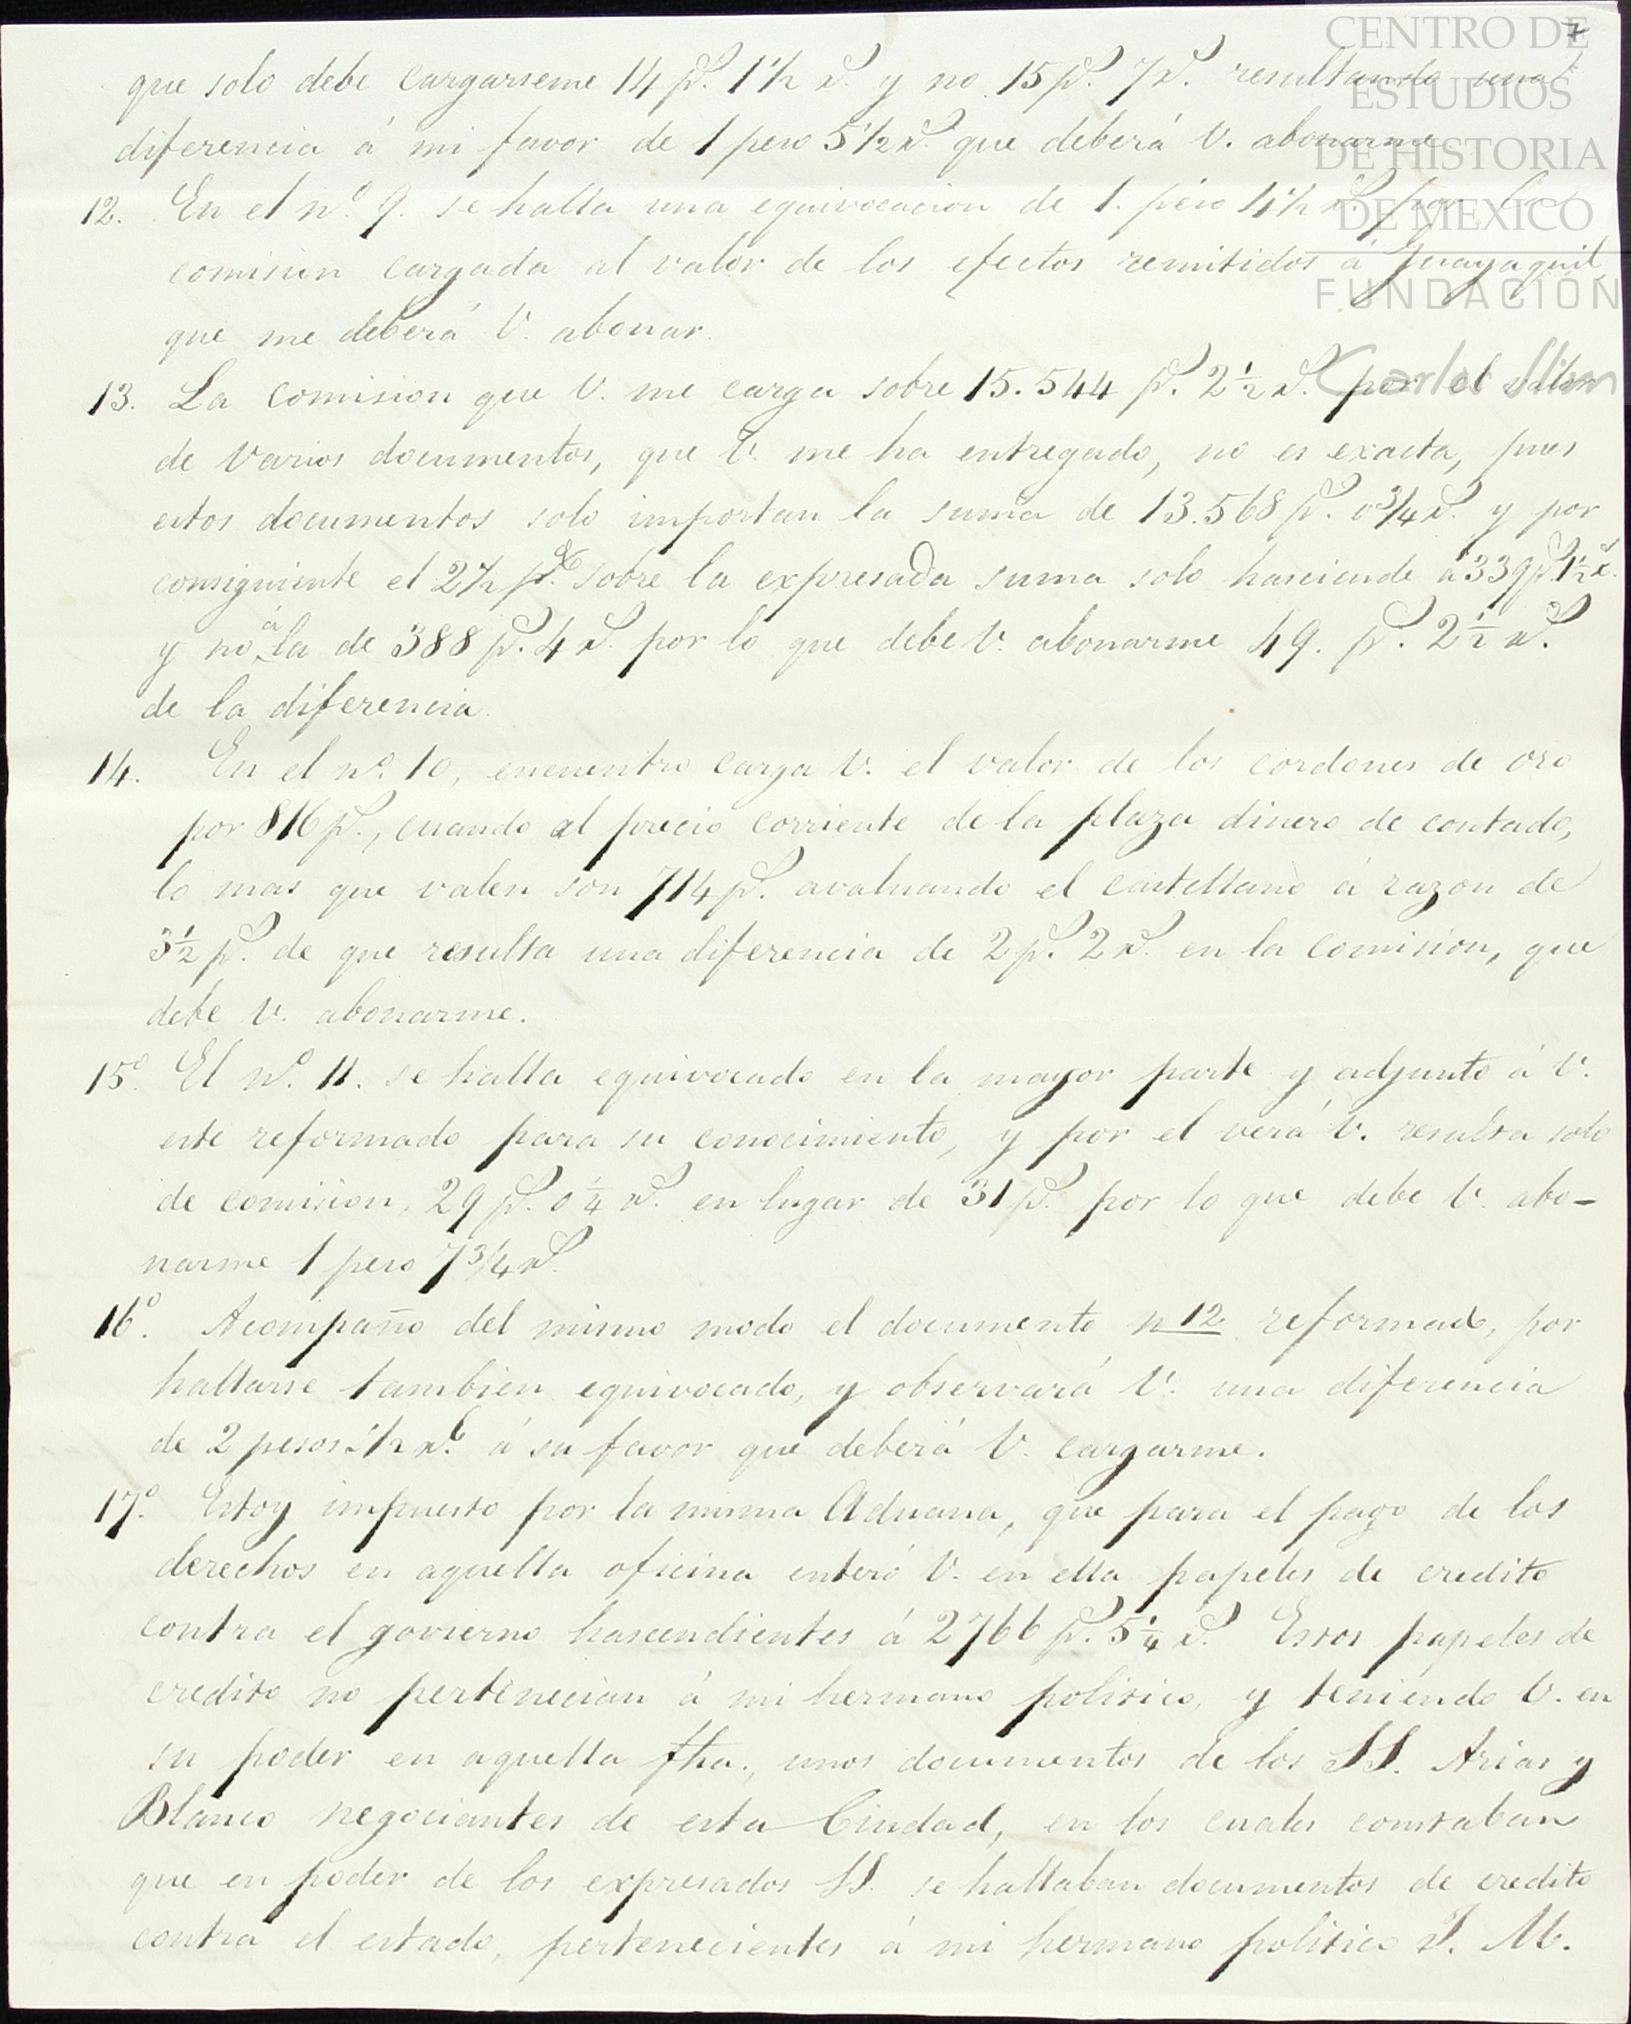 7
CENTRO DE
ESTUDIOS
DE HISTORIA
DE MEXICO
FUNDACIÓN
Carlos Slim
que solo debe cargarseme 14 p.s 1 1/2 r.s y no 15 p.s 7 r.s resultando una
diferencia á mi favor de 1 peso 5 1/2 r.s que deberá V. abonarme
12. En el n.o 9. se halla una equivocacion de 1. peso 1/2 r.s por la
comision cargada al valor de los efectos remitidos á Guayaquil
que me deberá V. abonar.
13. La comision que V. me carga sobre 15.544 p.s 2 1/2 r.s por el valor
de varios documentos, que V. me ha entregado, no es exacta, pues
estos documentos solo importan la suma de 13.568 p.s 0 3/4 r.s y por
consiguiente el 2 1/2 p.% sobre la expresada suma solo hasciende á 339 p.s 1 1/2 r.
y no á la de 388 p.s 4 r.s por lo que debe V. abonarme 49. p.s 2 1/2 r.s
de la diferencia.
14. En el n.o 10, encuentro carga V. el valor de los cordones de oro
por 816 p.s, cuando al precio corriente de la plaza dinero de contado,
lo mas que valen son 714 p.s avaluando el castellano á razon de
3 1/2 p.s de que resulta una diferencia de 2 p.s 2 r.s en la comision, que
debe V. abonarme.
15.o El n.o 11. se halla equivocado en la mayor parte y adjunto á V.
este reformado para su conocimiento, y por el verá V. resulta solo
de comision, 29 p.s 0 1/4 r.s en lugar de 31 p.s por lo que debe V. abo-
narme 1 peso 7 3/4 r.s
16.o Acompaño del mismo modo el documento n 12 reformado, por
hallarse tambien equivocado, y observará V. una diferencia
de 2 pesos 1/2 r.s á su favor que deberá V. cargarme.
17.o Estoy impuesto por la misma Aduana, que para el pago de los
derechos en aquella oficina enteró V. en ella papeles de credito
contra el govierno hascendientes á 2766 p.s 5 1/4 r.s Estos papeles de
credito no pertenecian á mi hermano politico, y teniendo V. en
su poder en aquella fha., unos documentos de los SS. Arias y
Blanco negociantes de esta Ciudad, en los cuales constaban
que en poder de los expresados SS. se hallaban documentos de credito
contra el estado, pertenecientes á mi hermano politico J. M.